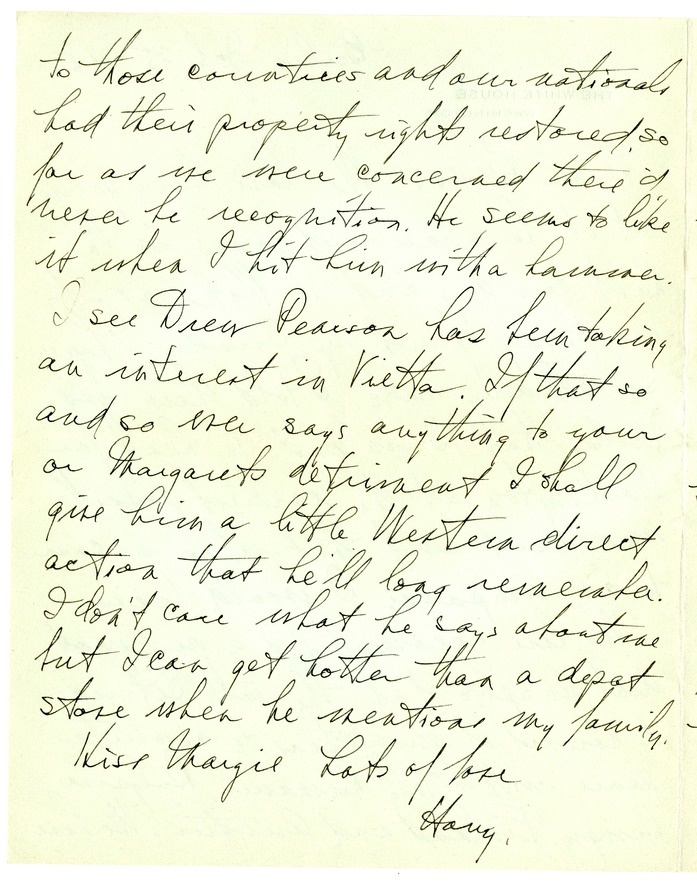 to those countries and our nationals
had their property rights restored, so
far as we were concerned there'd
never be recognition. He seems to like
it when I hit him with a hammer.
I see Drew Pearson has been taking
an interest in Vietta. If that so
and so ever says anything to your
or Margaret's detriment I shall
give him a little Western direct
action that he'll long remember.
I don't care what he says about me
but I can get hotter than a depot
stove when he mentions my family.
Kiss Margie Lots of love
Harry.